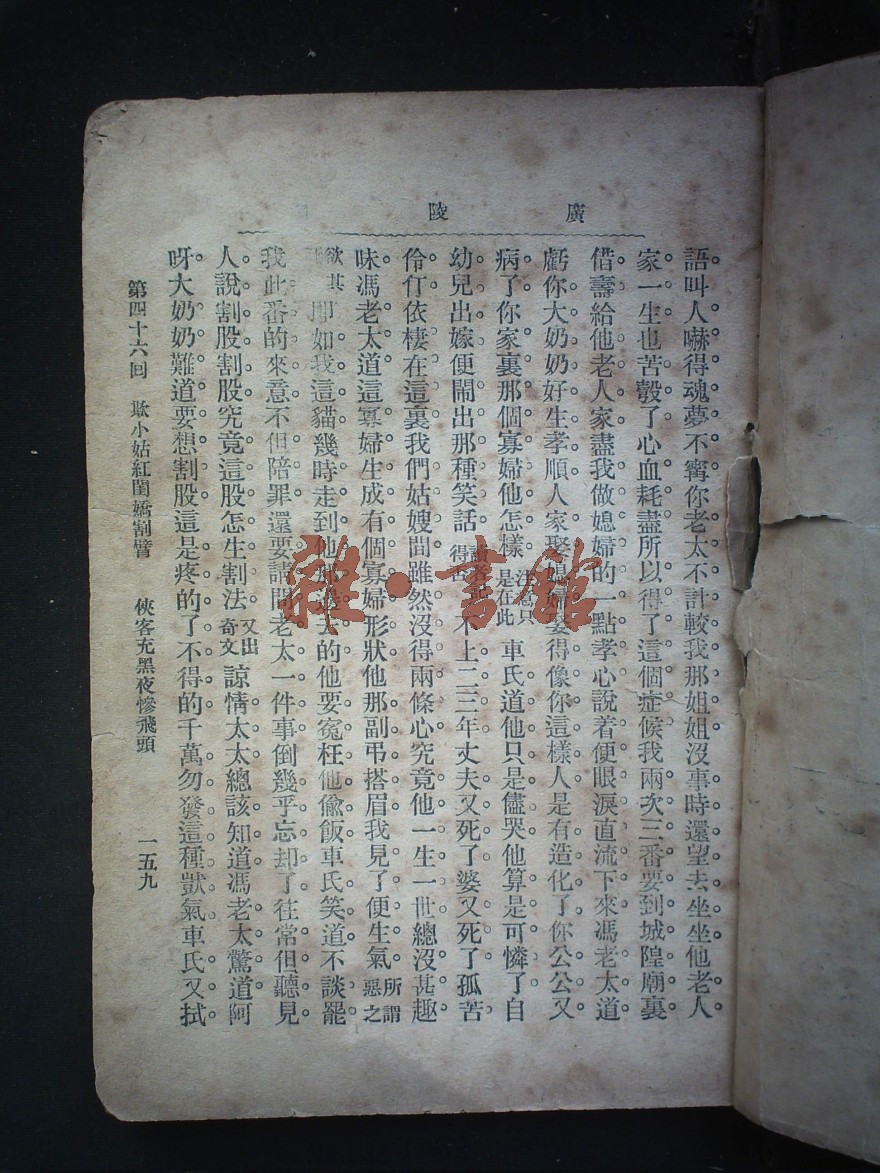 廣陵
語叫人嚇得魂夢不寗你老太不計較我那姐姐沒事時還望去坐坐他老人
家一生也苦彀了心血耗盡所以得了這個症候我兩次三番要到城隍廟裏
借壽給他老人家盡我做媳婦的一點孝心說着便眼淚直流下來馮老太道
虧你大奶奶好生孝順人家娶媳婦娶得像你這樣人是有造化了你公公又
病了你家裏那個寡婦他怎樣 是在此 車氏道他只是儘哭他算是可憐了自
幼兒出嫁便鬧出那種笑話 不上二三年丈夫又死了婆又死了孤苦
伶仃依棲在這裏我們姑嫂間雖然沒得兩條心究竟他一生一世總沒甚趣
味馮老太道這寡婦生成有個寡婦形狀他那副弔搭眉我見了便生氣 所謂惡之
欲其 即如我這貓幾時走到他 的他要冤枉他偷飯車氏笑道不談罷
我此番的來意不但陪罪還要請問老太一件事倒幾乎忘却了往常但聽見
人說割股割股究竟這股怎生割法 又出奇文 諒情太太總該知道馮老太驚道阿
呀大奶奶難道要想割股這是疼的了不得的千萬勿發這種獃氣車氏又拭
第四十六回 欺小姑紅閨嬌割臂 俠客充黑夜慘飛頭 一五九
雜·書館